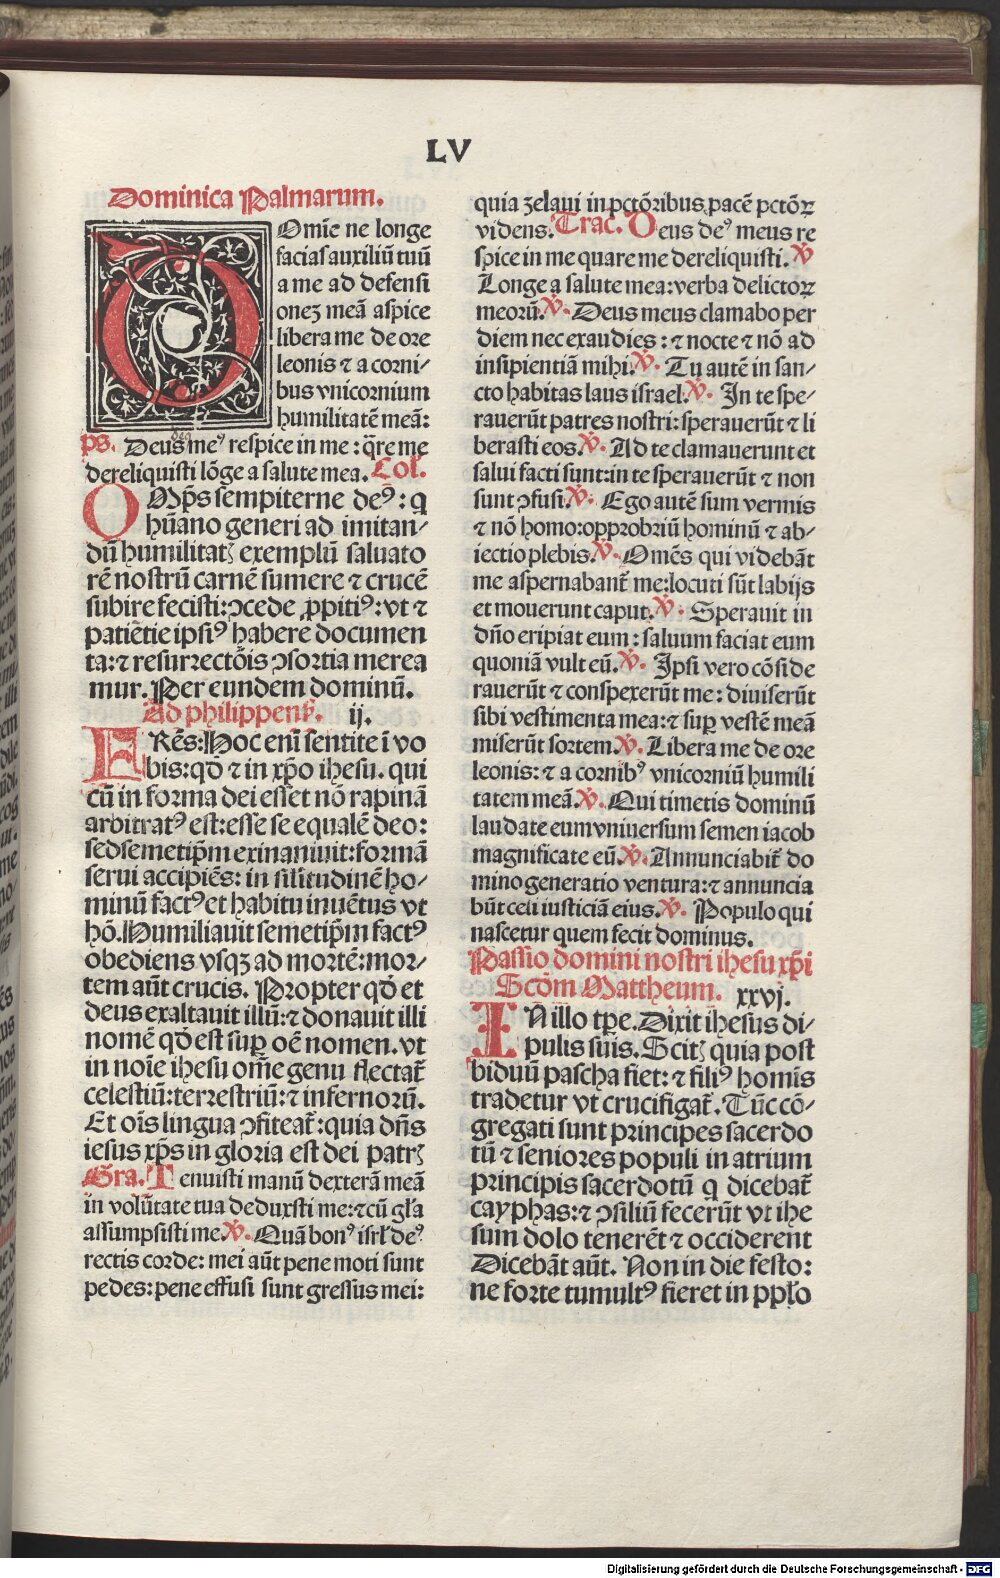 LV
Dominica Palmarum.
DOmīe ne longe
facias auxiliū tuū
a me ad defensi
onez meā aspice
libera me de ore
leonis ⁊ a corni-
bus vnicornium
humilitatē meā:
ps. Deus me⁹ respice in me : q̄re me
dereliquisti lōge a salute mea. Col.
OMp̄s sempiterne de⁹ : q
hūano generi ad imitan-
dū humilitatꝫ exemplū saluato
rē nostrū carnē sumere ⁊ crucē
subire fecisti: ꝯcede ꝓpiti⁹: vt ⁊
patiētie ipsi⁹ habere documen
ta: ⁊ resurrectōis ꝯsortia merea
mur. Per eundem dominū.
Ad philippens̄. ij.
FRēs: Hoc enī sentite ī vo
bis: qd̄ ⁊ in xp̄o ihesu. qui
cū in forma dei esset nō rapinā
arbitrat⁹ est: esse se equalē deo:
sed semetip̄m exinaniuit: formā
serui accipiēs: in silitudinē ho-
minū fact⁹ et habitu inuētus vt
hō. Humiliauit semetip̄m fact⁹
obediens vsqꝫ ad mortē: mor-
tem aūt crucis. Propter qd̄ et
deus exaltauit illū: ⁊ donauit illi
nomē qd̄ est suꝑ oē nomen. vt
in noīe ihesu om̄e genu flectat᷑
celestiū: terrestriū: ⁊ infernorū.
Et oīs lingua ꝯfiteat᷑: quia dn̄s
iesus xp̄s in gloria est dei patrꝫ
Gra. Tenuisti manū dexterā meā
in volūtate tua deduxsti me: ⁊cū gl̄a
assumpsisti me. ℣. Quā bon⁹ isrl̄ de⁹
rectis corde: mei aūt pene moti sunt
pedes: pene effusi sunt gressus mei:
quia zelaui in pctōribus pacē pctōꝝ
videns. Trac. Deus de⁹ meus re
spice in me quare me dereliquisti. ℣
Longe a salute mea: verba delictoꝝ
meorū. ℣. Deus meus clamabo per
diem nec exaudies : ⁊ nocte ⁊ nō ad
insipientiā mihi. ℣. Tu autē in san-
cto habitas laus israel. ℣. In te spe-
rauerūt patres nostri: sperauerūt ⁊ li
berasti eos. ℣. Ad te clamauerunt et
salui facti sunt: in te sperauerūt ⁊ non
sunt ꝯfusi. ℣. Ego autē sum vermis
⁊ nō homo: opprobriū hominū ⁊ ab-
iectio plebis. ℣. Omēs qui videbāt
me aspernabant᷑ me: locuti sūt labijs
et mouerunt caput. ℣. Sperauit in
dn̄o eripiat eum : saluum faciat eum
quoniā vult eū. ℣. Ipsi vero cōside
rauerūt ⁊ conspexerūt me : diuiserūt
sibi vestimenta mea: ⁊ suꝑ vestē meā
miserūt sortem. ℣. Libera me de ore
leonis: ⁊ a cornib⁹ vnicorniū humili
tatem meā. ℣. Qui timetis dominū
laudate eum vniuersum semen iacob
magnificate eū. ℣. Annunciabit᷑ do
mino generatio ventura: ⁊ annuncia
būt celi iusticiā eius. ℣. Populo qui
nascetur quem fecit dominus.
Passio domini nostri ihesu xp̄i
Scd̄m Mattheum. xxvj.
IN illo tꝑe. Dixit ihesus di-
pulis suis. Scitꝫ quia post
biduū pascha fiet: ⁊ fili⁹ homīs
tradetur vt crucifigat᷑. Tūc cō-
gregati sunt principes sacerdo
tū ⁊ seniores populi in atrium
principis sacerdotū q dicebat᷑
cayphas: ⁊ ꝯsiliū fecerūt vt ihe
sum dolo tenerēt ⁊ occiderent
Dicebāt aūt. Non in die festo:
ne forte tumult⁹ fieret in ppl̄o
Digitalisierung gefördert durch die Deutsche Forschungsgemeinschaft - DFG